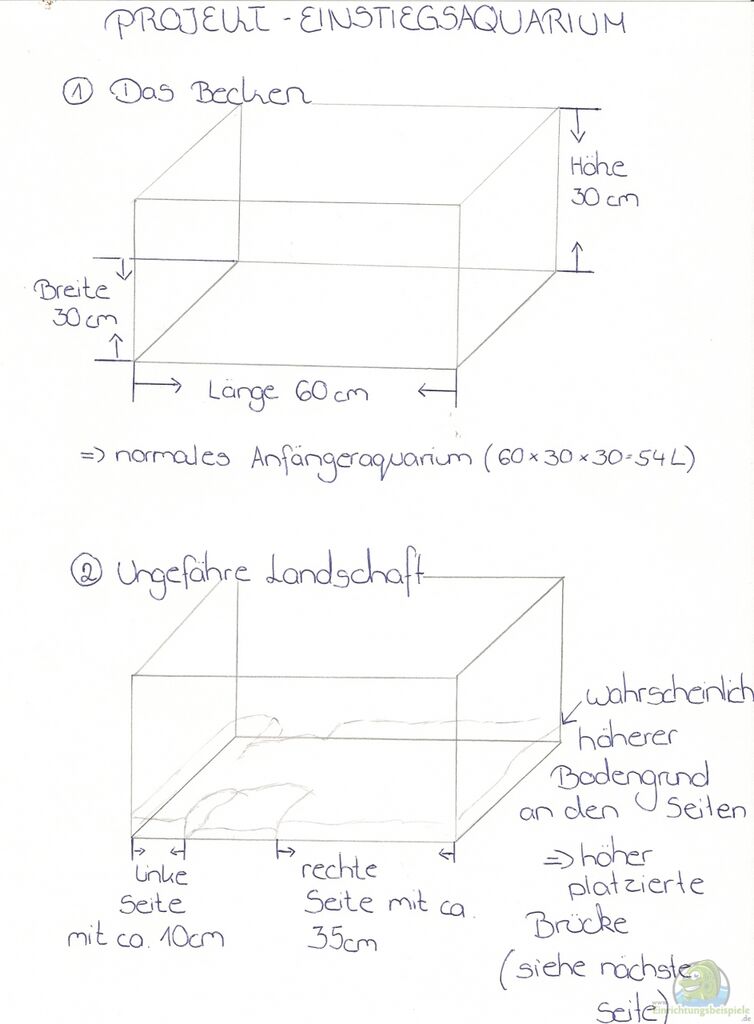 PROJEKT - EINSTIEGSAQUARIUM
① Das Becken
Höhe
30 cm
Breite
30 cm
Länge 60 cm
=> normales Anfängeraquarium (60 x 30 x 30 = 54 L)
② Ungefähre Landschaft
wahrscheinlich
höherer
Bodengrund
an den Seiten
=> höher
platzierte
Brücke
(siehe nächste
Seite)
linke
Seite
mit ca. 10cm
rechte
Seite mit ca.
35cm
www.
Einrichtungsbeispiele
.de